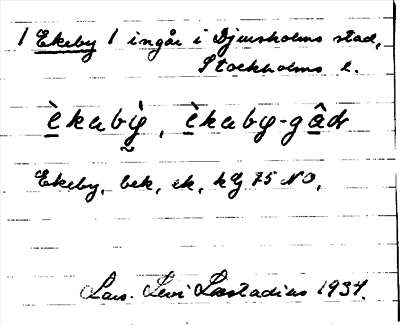 1 Ekeby 1 ingår i Djursholms stad,
Stockholms l.
è̱kabỳ, è̱kaby-gâ̱dr
Ekeby, bek, ek, kBJ 75 NO,
Lars. Levi Læstadius 1937.